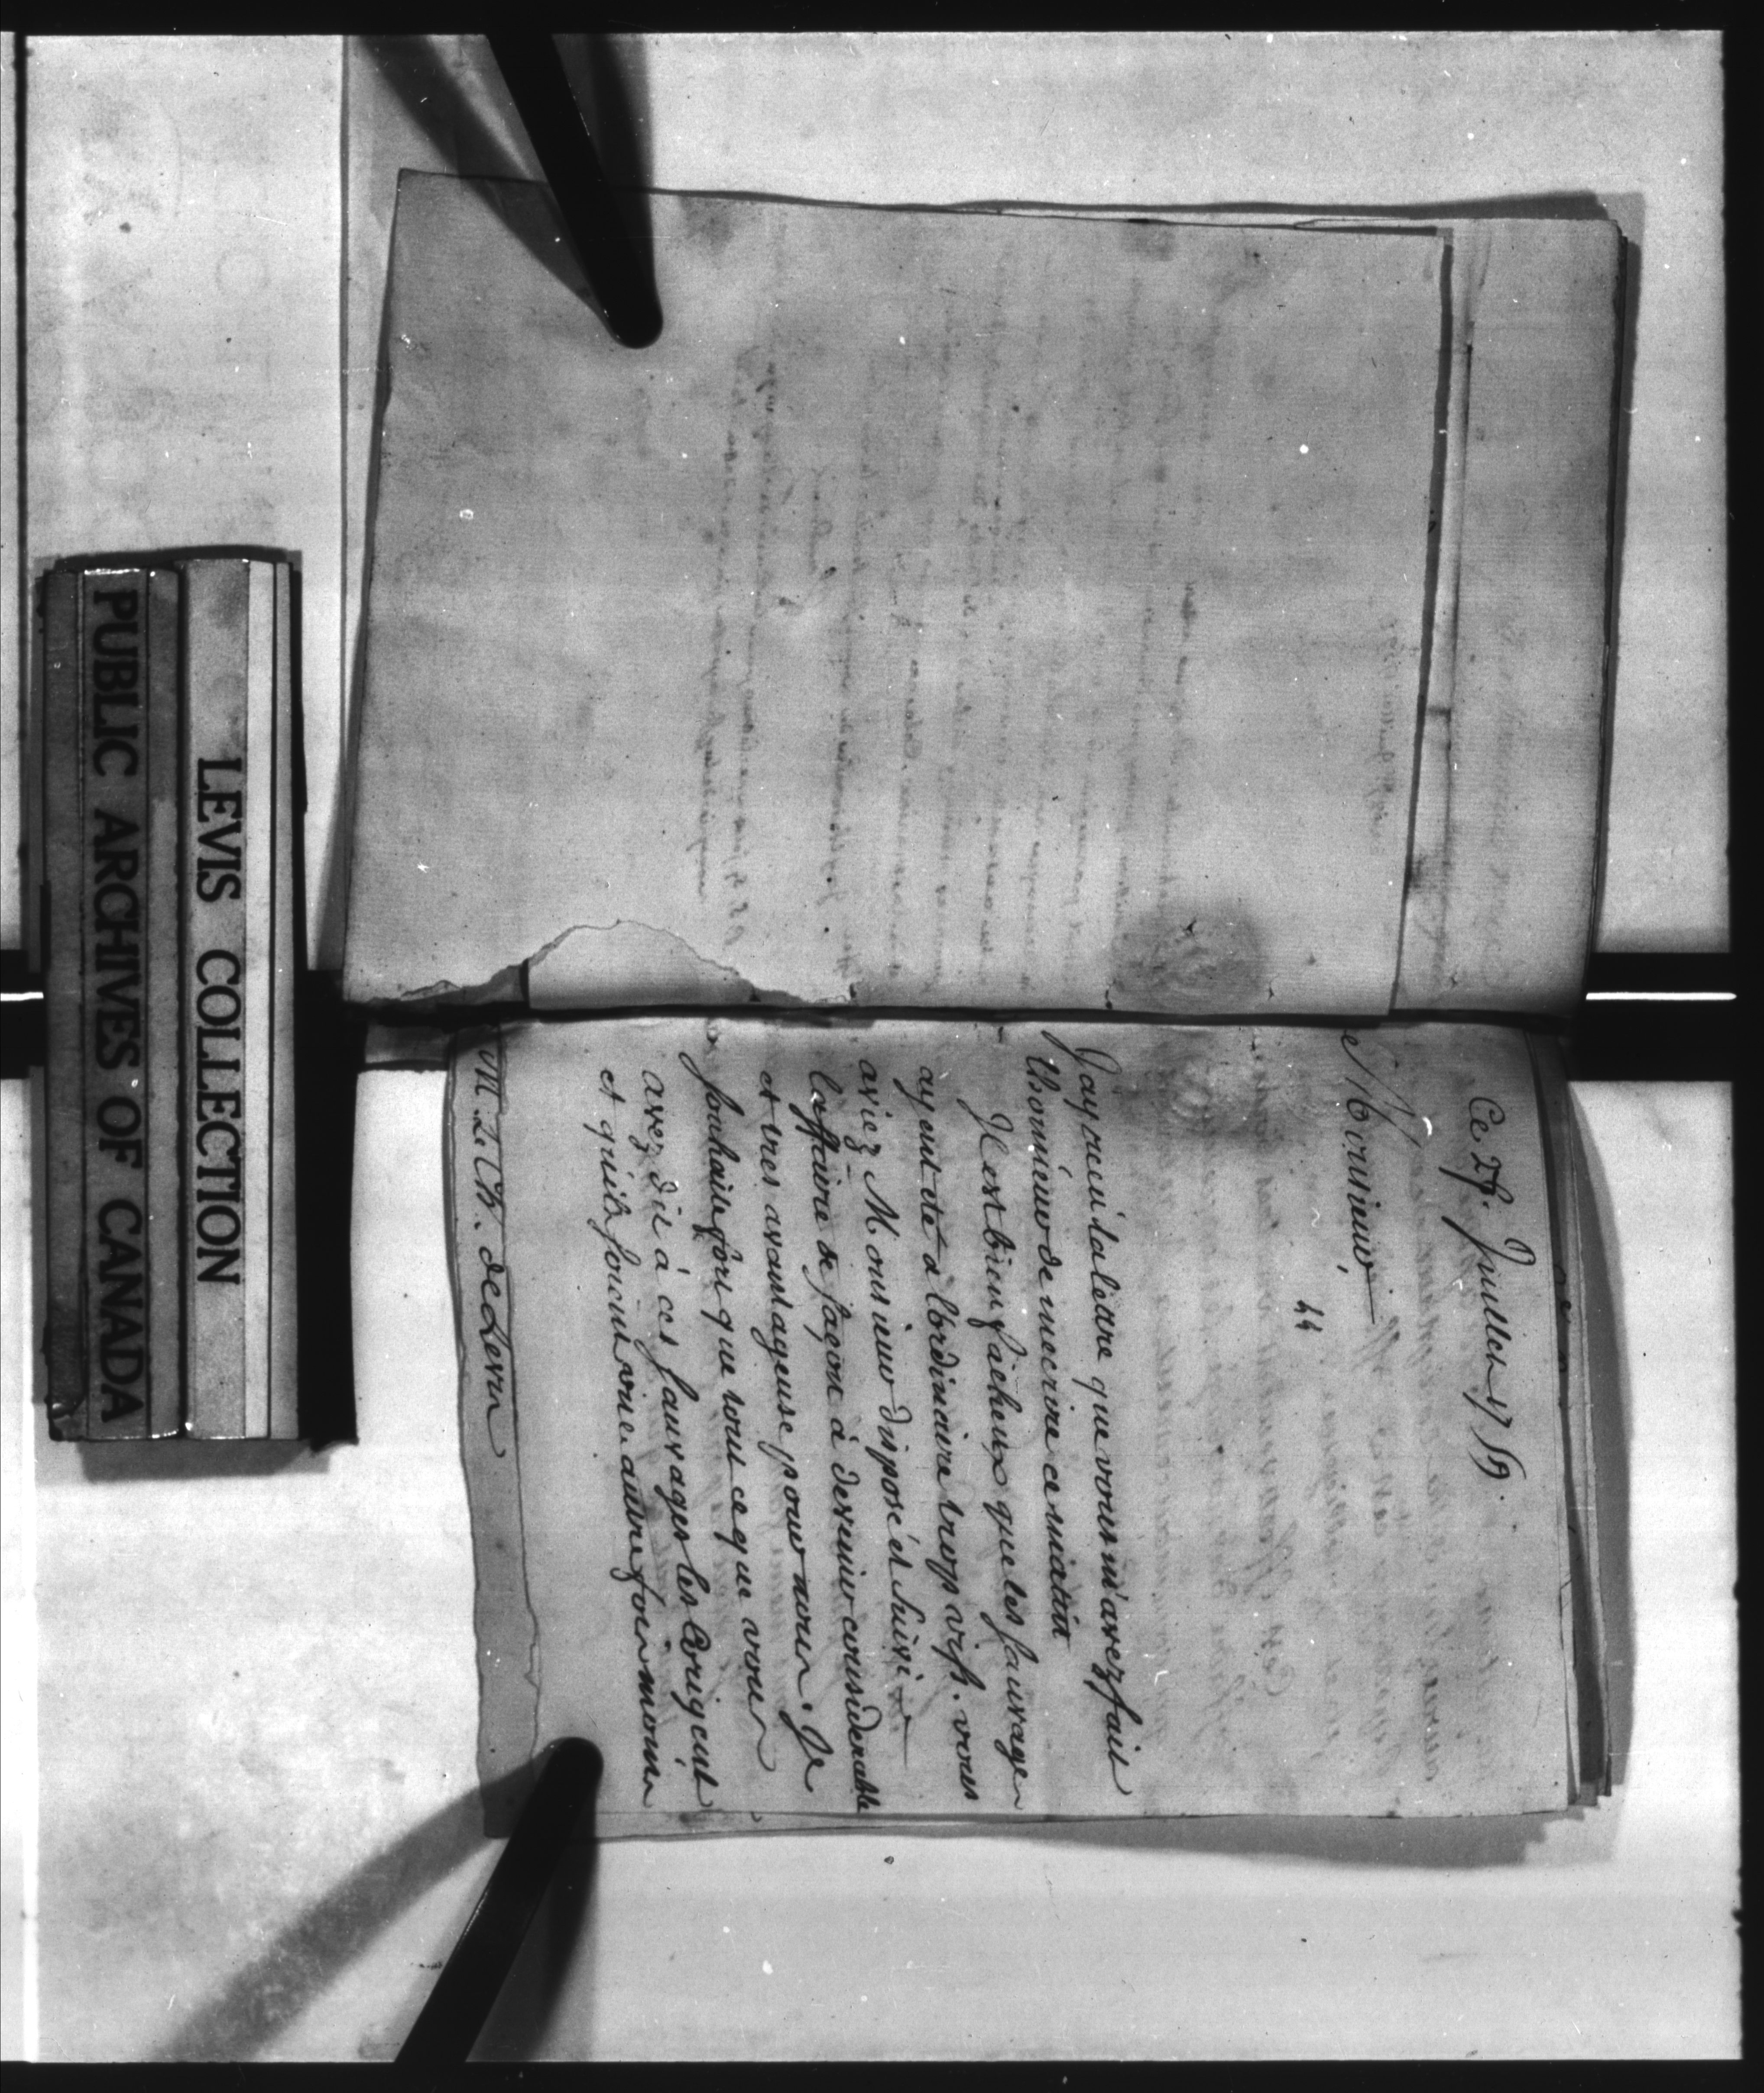 Ce 27. Juillet 1759.
Monsieur,
44
J'ay recu la lettre que vous m'avez fait
l'honnieur de mecrire ce matin
Il est bien facheux que les sauvages
ayent eté a l'ordinaire trop vifs. vous
aviez Monsieur disposé et suivi
l'affaire de façon à devenir considerable
et tres avantageuse pour nous. Je
souhaite fort que tout ce que vous
avez dit à ces sauvages les corigent
et quils soient une autre fois moins
M. Le Ch. de Levis
LEVIS COLLECTION
PUBLIC ARCHIVES OF CANADA